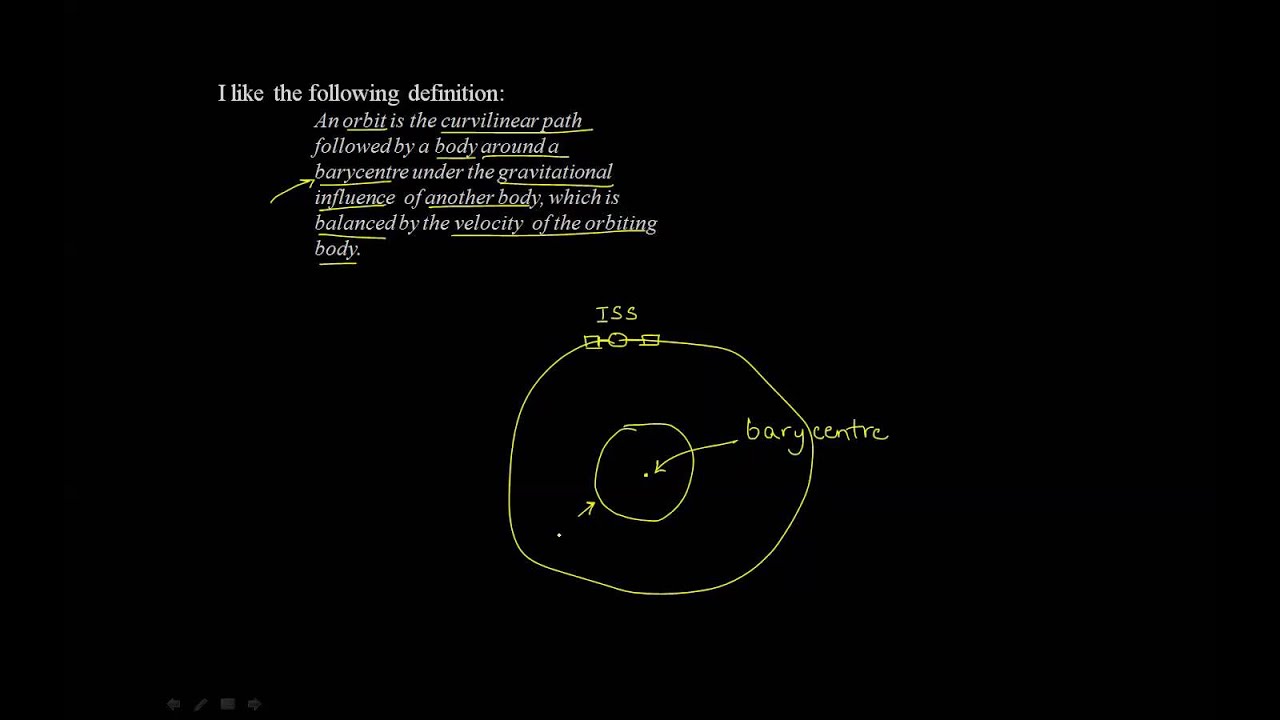 I like the following definition:
An orbit is the curvilinear path
followed by a body around a
barycentre under the gravitational
influence of another body, which is
balanced by the velocity of the orbiting
body.
ISS
barycentre